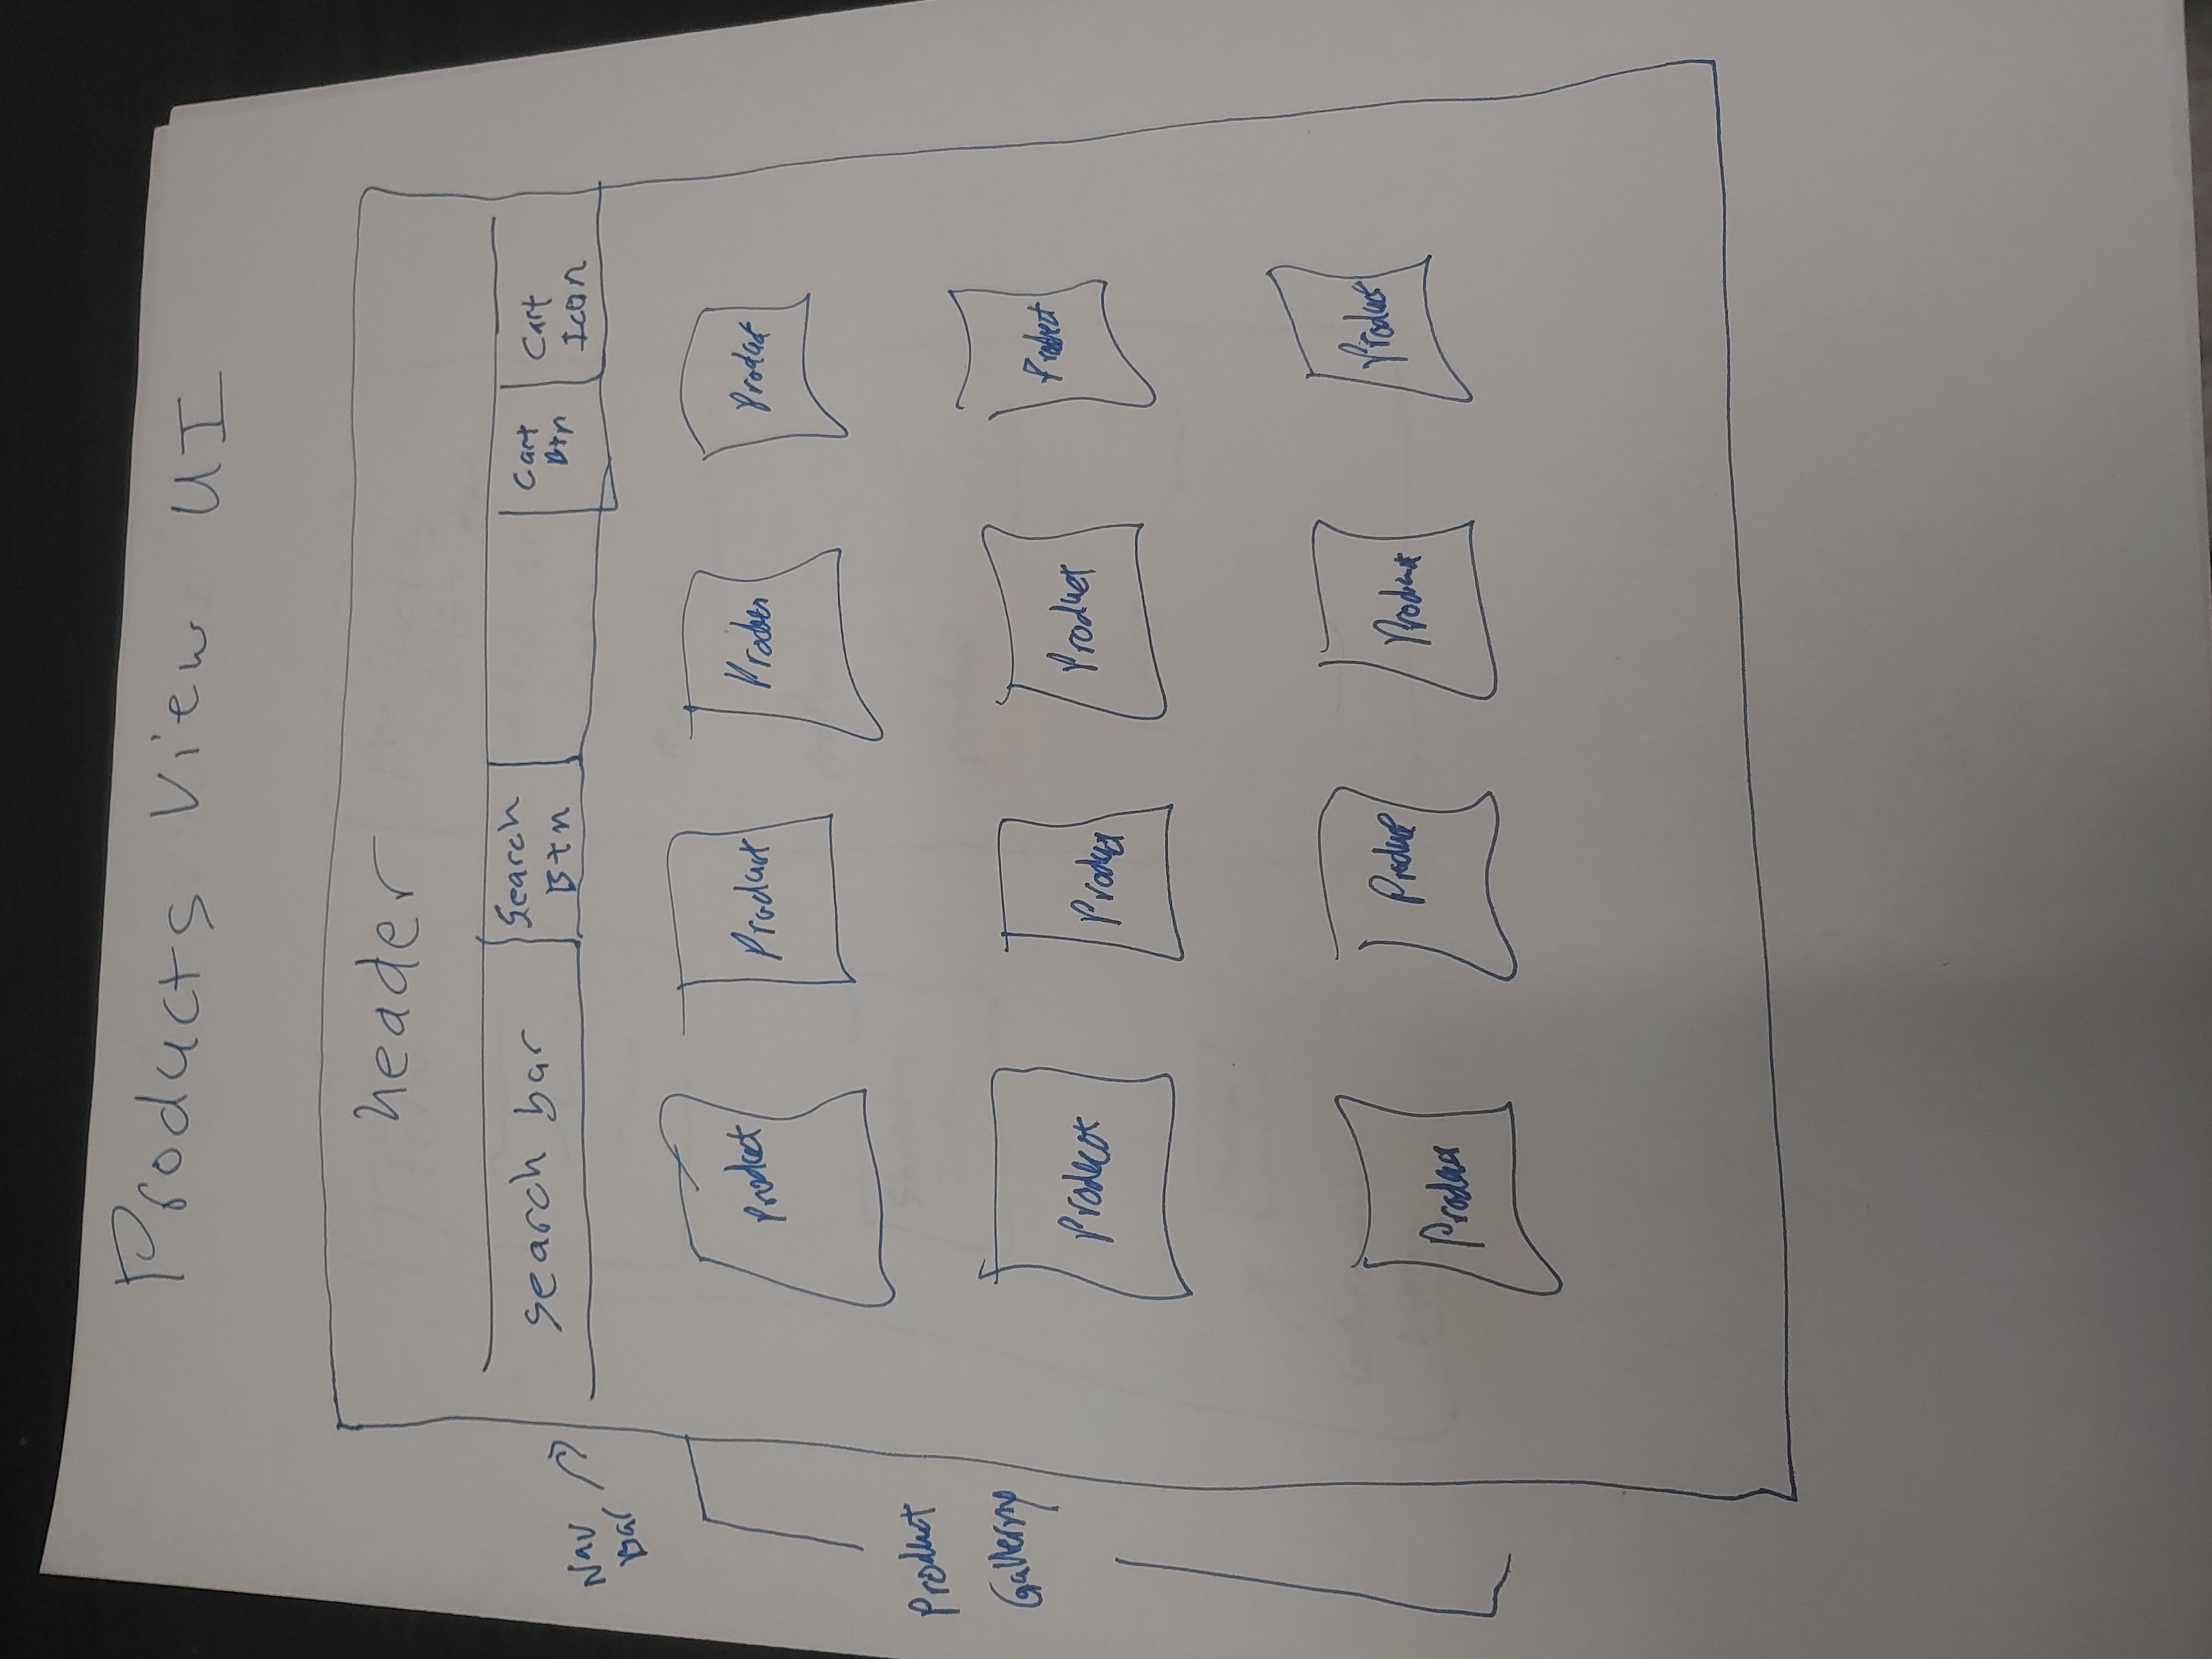 Products View UI
header
search bar
Search
Btn
Cart
Btn
Cart
Icon
Nav
Bar
Product
Product
Product
Product
Product
Gallery
Product
Product
Product
Product
Product
Product
Product
Product